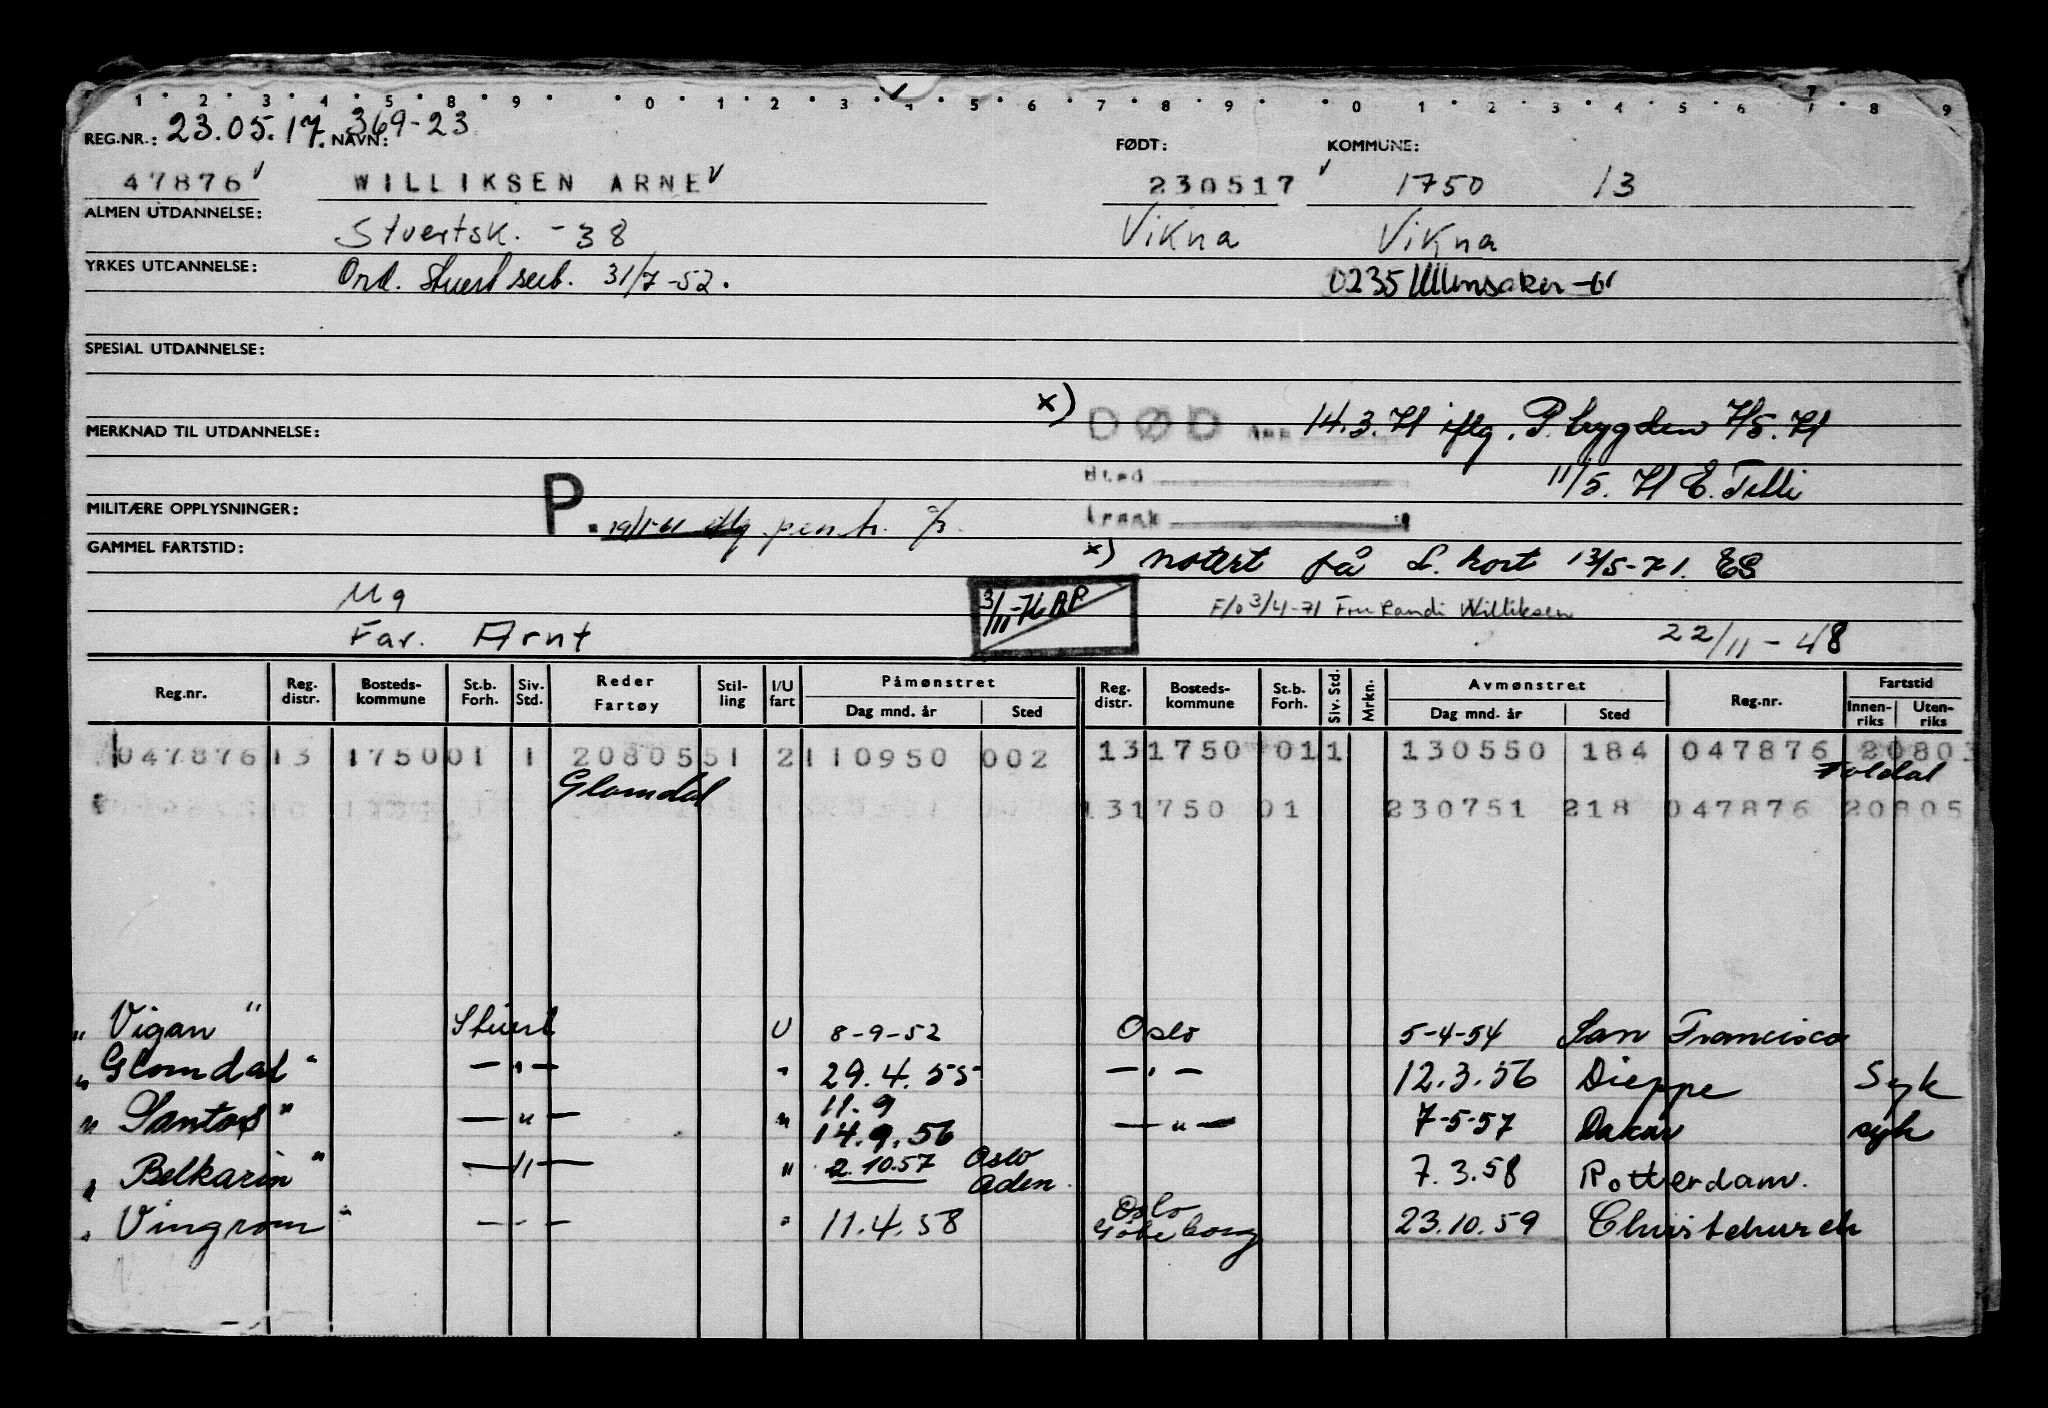 1 2 3 4 5 8 9 0 1 2 3 4 5 6 7 8 9 0 1 2 3 4 5 6 7 8 9
REG.NR.: 23.05.17. 369-23 NAVN: FØDT: KOMMUNE:
47876 WILLIKSEN ARNE 230517 1750 13
ALMEN UTDANNELSE: Stvertsk. -38 Vikna Vikna
YRKES UTDANNELSE: Ord. Stuert sert. 31/7-52. 0235 Ullensaker -61
SPESIAL UTDANNELSE:
x) DØD den 14.3.71 iflg. P. bygden 7/5.71
MERKNAD TIL UTDANNELSE:
Sted 11/5.71 E.
MILITÆRE OPPLYSNINGER: P. 19/1-61 iflg. pen.tr.
GAMMEL FARTSTID: x) notert på S. kort 13/5-71. ES
Ug 3/11-76 AP F/o 3/4-71 Fru Randi Williksen
Far. Arnt 22/11-48
Reg.nr. Reg. distr. Bosteds- kommune St.b. Forh. Siv. Std. Reder Fartøy Stil- ling I/U fart Påmønstret Dag mnd. år Sted Reg. distr. Bosteds- kommune St.b. Forh. Siv. Std. Mrkn. Avmønstret Dag mnd. år Sted Reg.nr. Fartstid Innen- riks Uten- riks
047876 13 1750 01 1 20805 51 2 110950 002 13 1750 01 1 130550 184 047876 20803
Glomdal Foldal
131750 01 230751 218 047876 20805
" Vigan " Stuert U 8-9-52 Oslo 5-4-54 San Francisco
" Glomdal " — " — " 29.4.55 — " — 12.3.56 Dieppe Syk
" Santos " — " — " 11.9 14.9.56 — " — 7-5-57 Dakar syk
" Belkarin " — " — " 2.10.57 Oslo Aden. 7.3.58 Rotterdam.
" Vingrom " — " — " 11.4.58 Oslo Göteborg 23.10.59 Christchurch